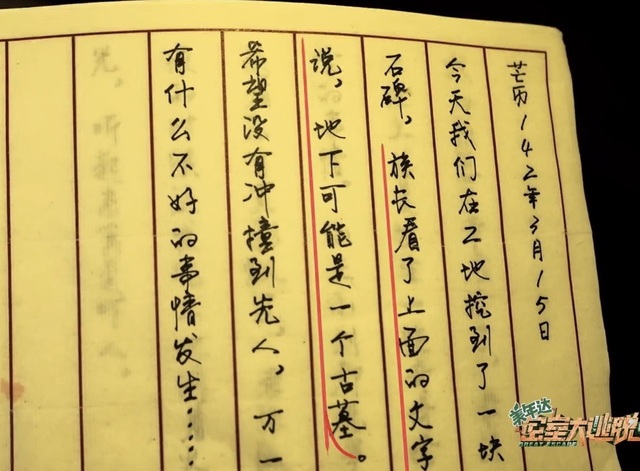 芒历142年3月15日
今天我们在工地挖到了一块
石碑，族长看了上面的文字
说，地下可能是一个古墓。
希望没有冲撞到先人，万一
有什么不好的事情发生……
美年达
密室大逃脱
GREAT ESCAPE